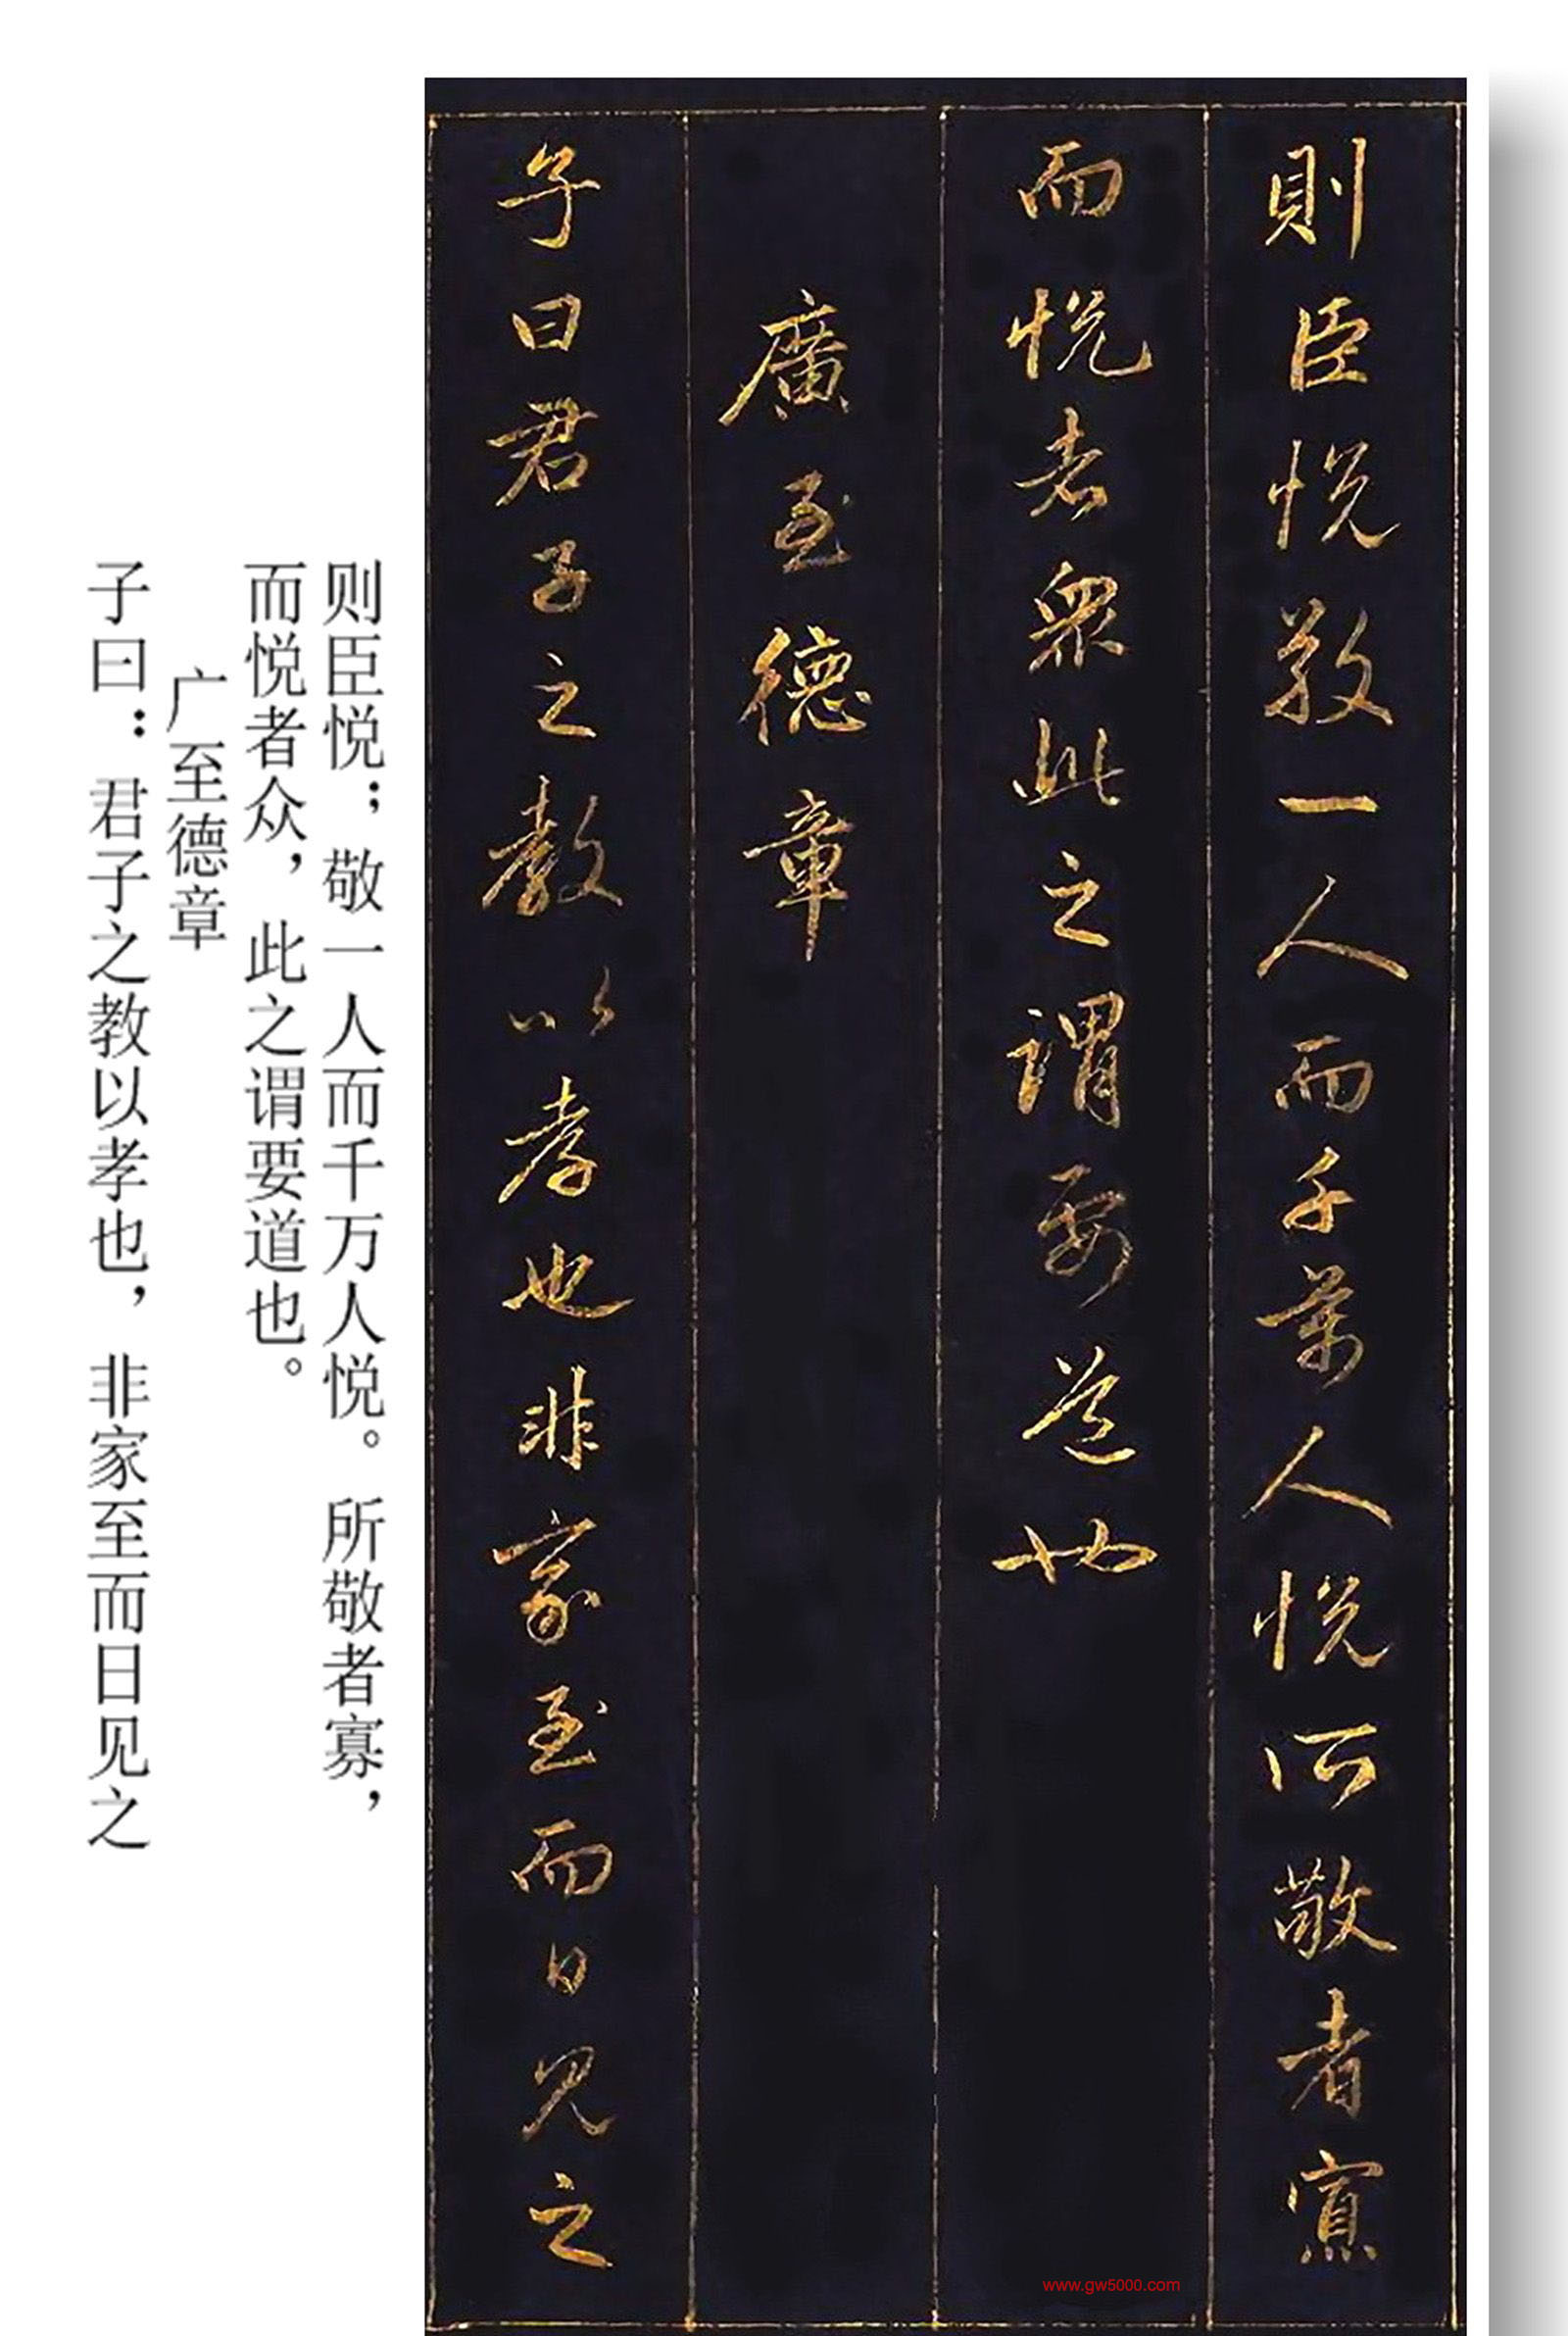 則臣悅敬一人而千萬人悅所敬者寡
而悅者衆此之謂要道也
廣至德章
子曰君子之教以孝也非家至而日見之
则臣悦；敬一人而千万人悦。所敬者寡，
而悦者众，此之谓要道也。
广至德章
子曰：君子之教以孝也，非家至而日见之
www.gw5000.com